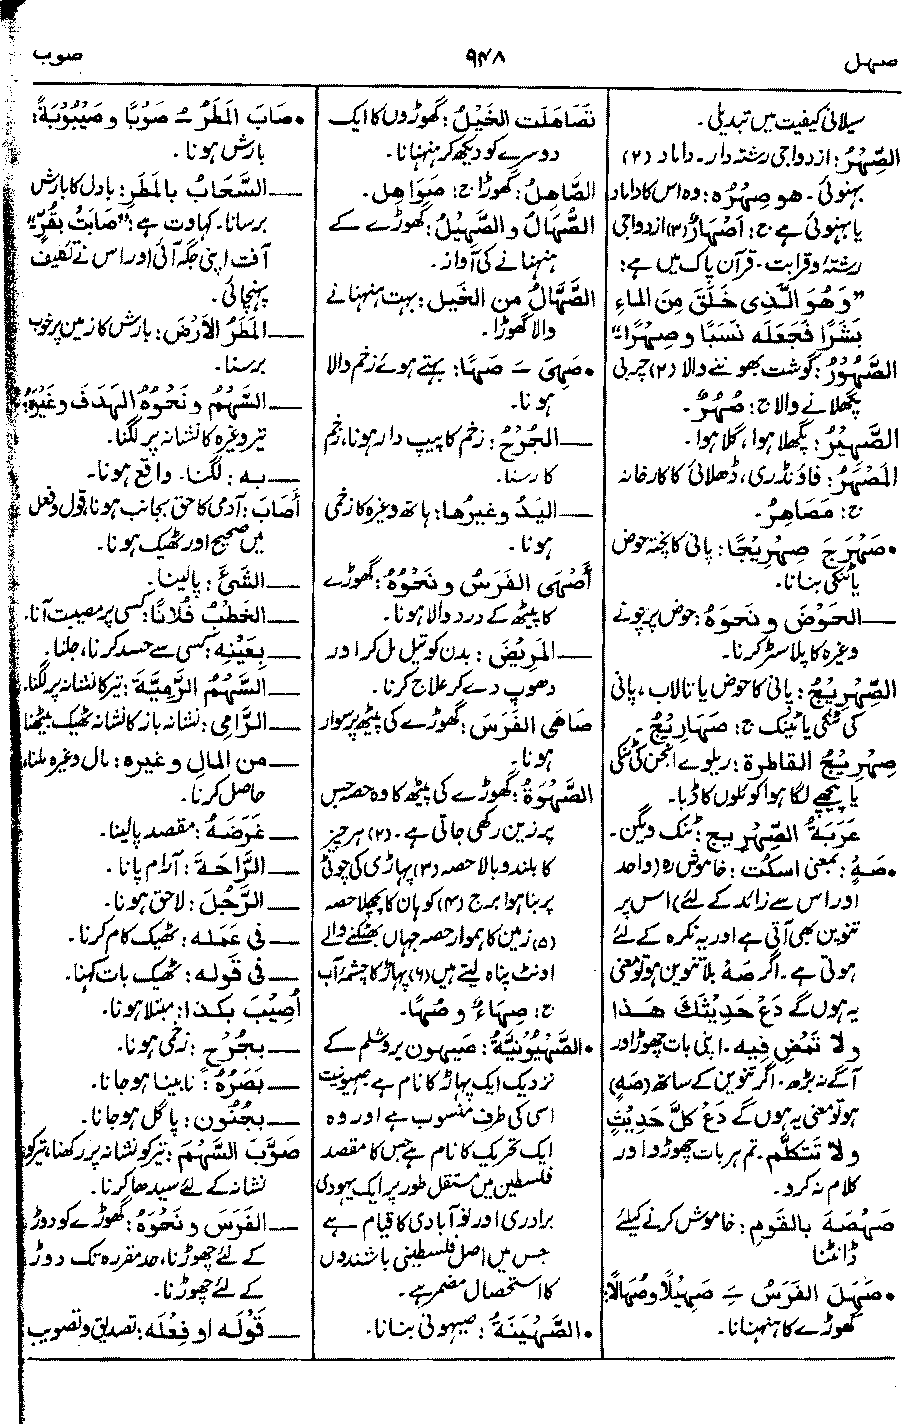 صہل ۹۴۸ صوب
سیلانی کیفیت میں تبدیلی۔
الصِّهْرُ: ازدواجی رشتہ دار۔ داماد (۲)
بہنوئی۔ هو صِهْرُه: وہ اس کا داماد
یا بہنوئی ہے ج: أَصْهَارٌ (۳) ازدواجی
رشتہ و قرابت۔ قرآن پاک میں ہے:
”وَهُوَ الَّذِی خَلَقَ مِنَ الماءِ
بَشَرًا فَجَعَلَه نَسَبًا و صِهْرًا“
الصَّهُوْرُ: گوشت بھوننے والا (۲) چربی
پگھلانے والا ج: صُهُرٌ۔
الصَّهِيْرُ: پگھلا ہوا، گلا ہوا۔
المَصْهَرُ: فاؤنڈری، ڈھلائی کا کارخانہ
ج: مَصَاهِرُ۔
• صَهْرَجَ صِهْرِيْجًا: پانی کا پختہ حوض
یا ٹنکی بنانا۔
— الحَوْضَ و نَحْوَهُ: حوض پر چونے
وغیرہ کا پلاسٹر کرنا۔
الصِّهْرِيْجُ: پانی کا حوض یا تالاب، پانی
کی ٹنکی یا ٹینک ج: صَهَارِيْجُ۔
صِهْرِيْجُ القَاطِرَة: ریلوے انجن کی ٹنکی
یا پیچھے لگا ہوا کوئلوں کا ڈبا۔
عَرَبَةُ الصِّهْرِيج: ٹنک ویگن۔
• صَهْ: بمعنی اسکت: خاموش رہ (واحد
اور اس سے زائد کے لئے) اس پر
تنوین بھی آتی ہے اور یہ نکرہ کے لئے
ہوتی ہے۔ اگر صَهْ بلا تنوین ہو تو معنی
یہ ہوں گے دَعْ حَدِيْثَكَ هَذا
ولا تَمْضِ فِيه۔ اپنی بات چھوڑ اور
آگے نہ بڑھ۔ اگر تنوین کے ساتھ (صَهٍ)
ہو تو معنی یہ ہوں گے دَعْ كلَّ حَدِيْثٍ
ولا تَتَكَلَّم۔ تم ہر بات چھوڑ دو اور
کلام نہ کرو۔
صَهْصَهَ بالقَومِ: خاموش کرنے کیلئے
ڈانٹنا
• صَهَلَ الفَرَسُ ـَ صَهِيْلًا و صُهَالًا:
گھوڑے کا ہنہنانا۔
تَصَاهَلَت الخَيْلُ: گھوڑوں کا ایک
دوسرے کو دیکھ کر ہنہنانا۔
الصَّاهِلُ: گھوڑا ج: صَوَاهِل۔
الصُّهَالُ و الصَّهِيْلُ: گھوڑے کے
ہنہنانے کی آواز۔
الصَّهَّالُ من الخَيل: بہت ہنہنانے
والا گھوڑا۔
• صَهِیَ ـَ صَهًا: بہتے ہوئے زخم والا
ہونا۔
— الجُرْحُ: زخم کا پیپ دار ہونا، زخم
کا رسنا۔
— اليَدُ وغيرُها: ہاتھ وغیرہ کا زخمی
ہونا۔
أَصْهَى الفَرَسُ و نَحْوُهُ: گھوڑے
کا پیٹھ کے درد والا ہونا۔
— المَرِيْضَ: بدن کو تیل مل کر اور
دھوپ دے کر علاج کرنا۔
صَاهَى الفَرَسَ: گھوڑے کی پیٹھ پر سوار
ہونا۔
الصَّهْوَةُ: گھوڑے کی پیٹھ کا وہ حصہ جس
پر زین رکھی جاتی ہے۔ (۲) ہر چیز
کا بلند و بالا حصہ (۳) پہاڑی کی چوٹی
پر بنا ہوا برج (۴) کوہان کا پچھلا حصہ
(۵) زمین کا ہموار حصہ جہاں بھٹکنے والے
اونٹ پناہ لیتے ہیں (۶) پہاڑ کا چشمۂ آب
ج: صِهَاءٌ و صُهًا۔
• الصَّهْيُوْنِيَّةُ: صیہون یروشلم کے
نزدیک ایک پہاڑ کا نام ہے۔ صیہونیت
اسی کی طرف منسوب ہے اور وہ
ایک تحریک کا نام ہے جس کا مقصد
فلسطین میں مستقل طور پر ایک یہودی
برادری اور نوآبادی کا قیام ہے
جس میں اصل فلسطینی باشندوں
کا استحصال مضمر ہے۔
• الصَّهْيَنَةُ: صیہونی بنانا۔
• صَابَ المَطَرُ ـُ صَوْبًا و صَيْبُوْبَةً:
بارش ہونا۔
— السَّحَابُ بالمَطَرِ: بادل کا بارش
برسانا۔ کہاوت ہے: ”صَابَتْ بقُرٍّ“
آفت اپنی جگہ آئی اور اس نے تکلیف
پہنچائی۔
— المَطَرُ الأَرْضَ: بارش کا زمین پر خوب
برسنا۔
— السَّهْمُ و نَحْوُهُ الهَدَفَ وغیرَه:
تیر وغیرہ کا نشانہ پر لگنا۔
— بِه: لگنا۔ واقع ہونا۔
أَصَابَ: آدمی کا حق بجانب ہونا، قول و فعل
میں صحیح اور ٹھیک ہونا۔
— الشَّیْءَ: پالینا۔
— الخَطْبُ فُلَانًا: کسی پر مصیبت آنا۔
— بِعَيْنِهِ: کسی سے حسد کرنا، جلنا۔
— السَّهْمُ الرَّمِيَّةَ: تیر کا نشانہ پر لگنا۔
— الرَّامِی: نشانہ باز کا نشانہ ٹھیک بیٹھنا
— من المالِ وغیرِه: مال وغیرہ ملنا،
حاصل کرنا۔
— غَرَضَهُ: مقصد پالینا۔
— الرَّاحَةَ: آرام پانا۔
— الرَّجُلَ: لاحق ہونا۔
— فی عَمَلِه: ٹھیک کام کرنا۔
— فی قَولِه: ٹھیک بات کہنا۔
أُصِيْبَ بکذا: مبتلا ہونا۔
— بجُرْحٍ: زخمی ہونا۔
— بَصَرُهُ: نابینا ہو جانا۔
— بجُنُون: پاگل ہو جانا۔
صَوَّبَ السَّهْمَ: تیر کو نشانہ پر رکھنا، تیر کو
نشانہ کے لئے سیدھا کرنا۔
— الفَرَسَ و نَحْوَهُ: گھوڑے کو دوڑ
کے لئے چھوڑنا، حد مقررہ تک دوڑ
کے لئے چھوڑنا۔
— قَوْلَه او فِعْلَه: تصدیق و تصویب